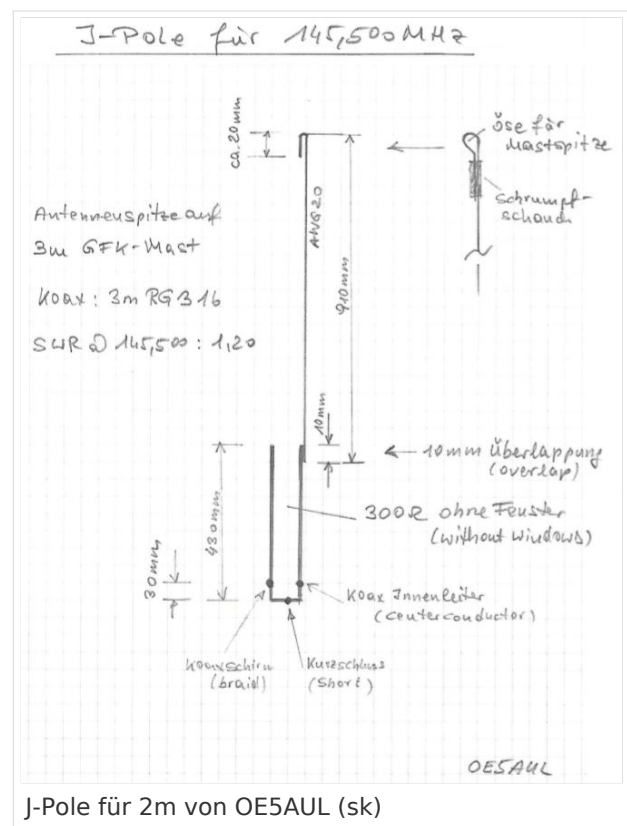 J-Pole für 145,500MHz
ca. 20mm
Öse für
Mastspitze
Schrumpf-
schlauch
Antennenspitze auf
3m GFK-Mast
Koax: 3m RG316
SWR @ 145,500: 1,20
AWG20
910mm
10mm
10mm Überlappung
(overlap)
430mm
30mm
300Ω ohne Fenster
(without windows)
Koax Innenleiter
(centerconductor)
Koaxschirm
(braid)
Kurzschluss
(Short)
OE5AUL
J-Pole für 2m von OE5AUL (sk)